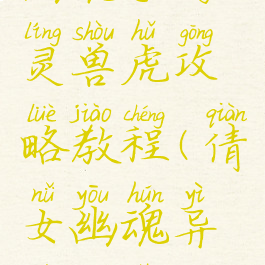 líng shòu hǔ gōng
灵兽虎攻
lüè jiào chéng qiàn
略教程(倩
nǚ yōu hún yì
女幽魂异